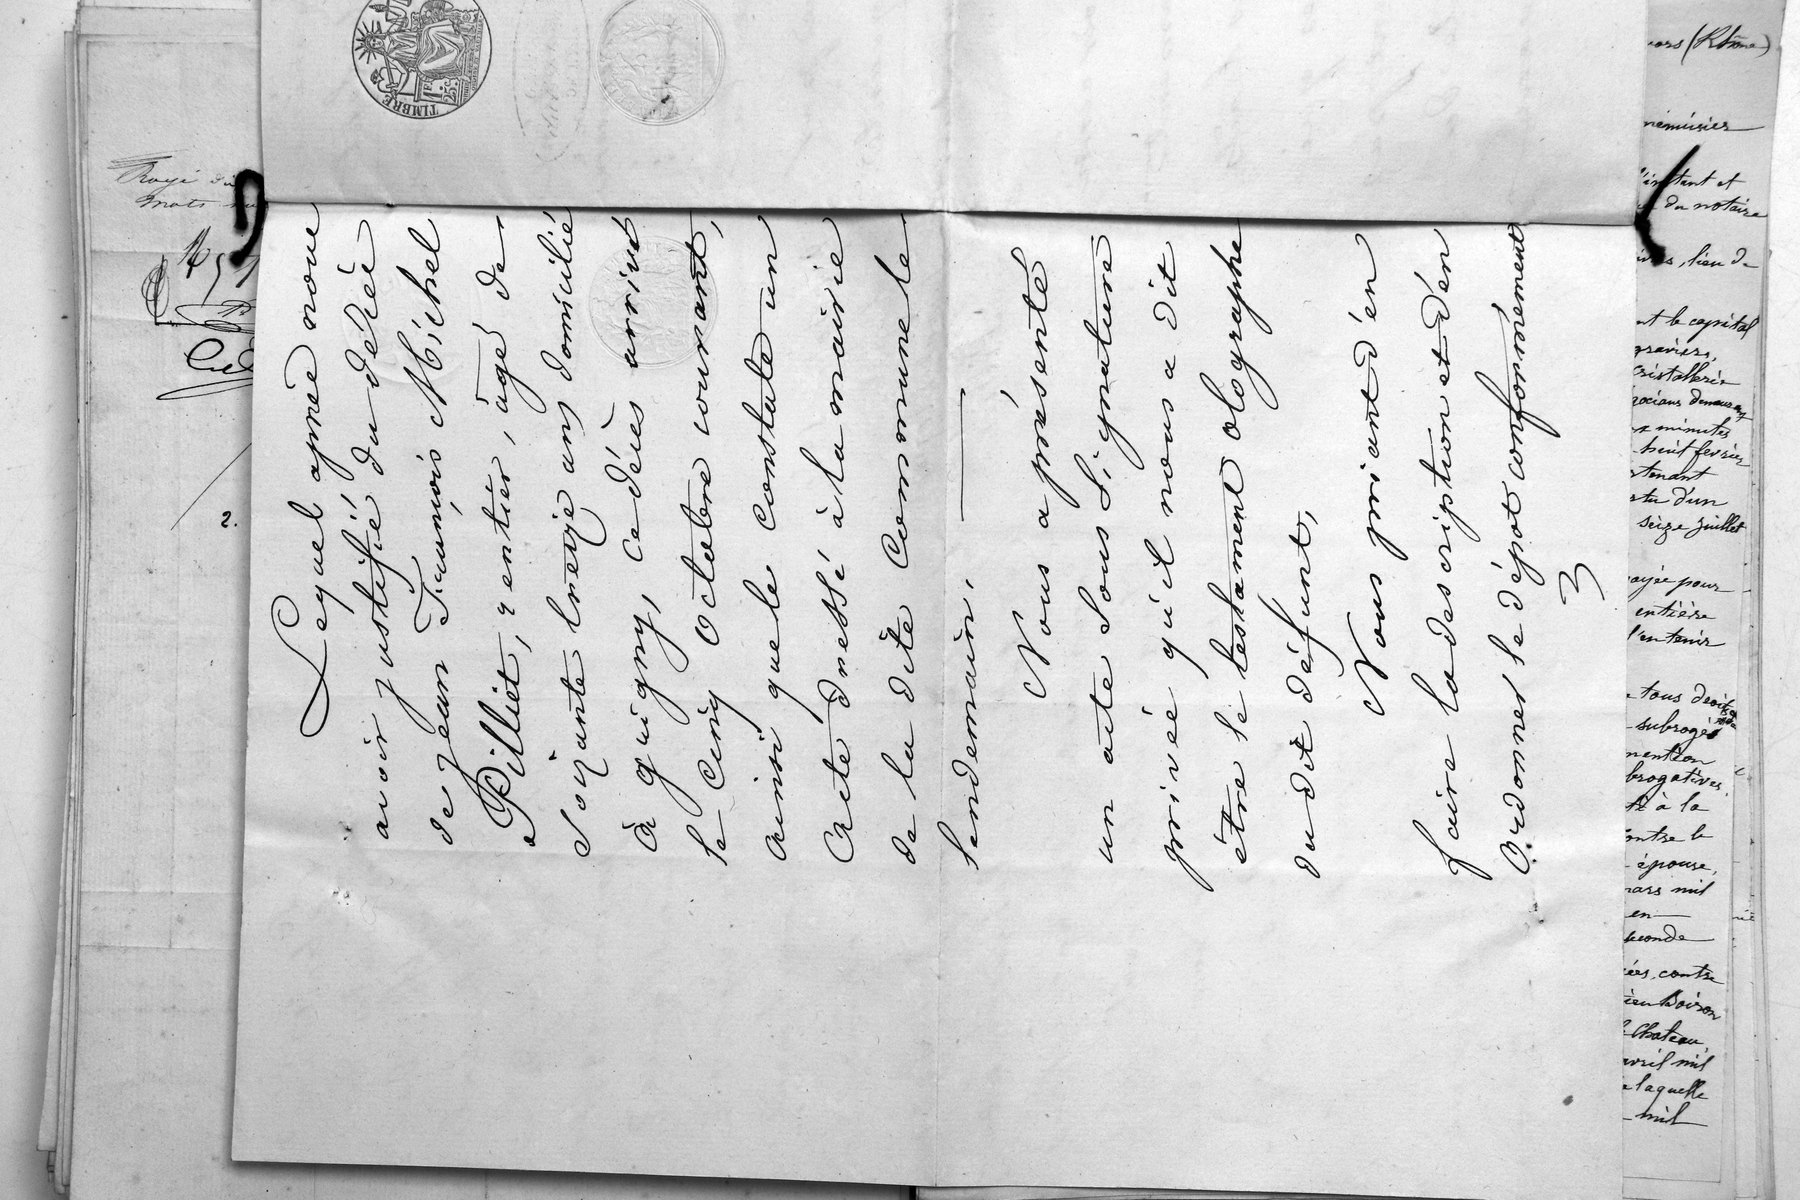 Lequel après nous
avoir justifié du décès
de Jean François Michel
Pilliet, rentier, âgé de
soixante treize ans domicilié
à Guigny, ce décès arrivé
le Cinq Octobre courant,
ainsi que le constate un
acte dressé à la mairie
de la dite Commune le
lendemain.
Nous a présenté
un acte sous signature
privée qu'il nous a dit
être le testament olographe
du dit défunt,
Nous priant d'en
faire la description et d'en
Ordonner le dépot conformément
3
TIMBRE
25c
Rayé
mots
2.
(Rhône)
l'instant et
du notaire
lien de
le capital
graviers,
cristallerie
minutes
huit février
d'un
seize juillet
pour
entière
l'entenir
tous droits
subrogé
mention
à la
contre le
épouse,
mars mil
en
seconde
contre
Château
avril mil
laquelle
mil